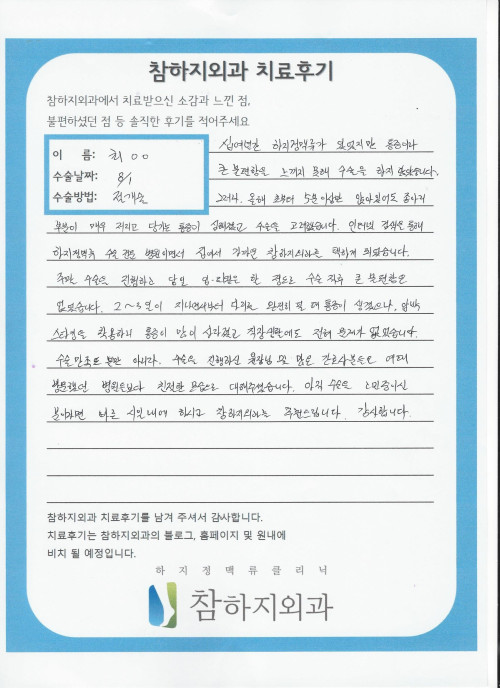 참하지외과 치료후기
참하지외과에서 치료받으신 소감과 느낀 점,
불편하셨던 점 등 솔직한 후기를 적어주세요
이 름: 최ㅇㅇ
수술날짜: 8/1
수술방법:
십여년전 하지정맥류가 있었지만 통증이나
큰 불편함은 느끼지 못해 수술을 하지 않았습니다.
그러나, 올해 초부터 5분이상만 앉아있어도 종아리
부분이 매우 저리고 당기는 통증이 심해졌고 수술을 고려했습니다. 인터넷 검색을 통해
하지정맥류 수술 전문 병원이면서 집에서 가까운 참하지외과를 택하게 되었습니다.
주말 수술을 진행하고 당일 영·타박은 한 정도로 수술 직후 큰 불편함은
없었습니다. 2~3일이 지나면서부터 다리를 완전히 펼 때 통증이 생겼으나, 압박
스타킹을 착용하니 통증이 많이 사라졌고 직장생활에도 전혀 문제가 없었습니다.
수술만족도 뿐만 아니라, 수술을 진행하신 원장님 및 많은 간호사분들도 여태
방문했던 병원들보다 친절한 모습으로 대해주셨습니다. 아직 수술을 고민중이신
분이라면 빠른 시일내에 하시고 참하지외과를 추천드립니다. 감사합니다.
참하지외과 치료후기를 남겨 주셔서 감사합니다.
치료후기는 참하지외과의 블로그, 홈페이지 및 원내에
비치 될 예정입니다.
하지정맥류클리닉
참하지외과